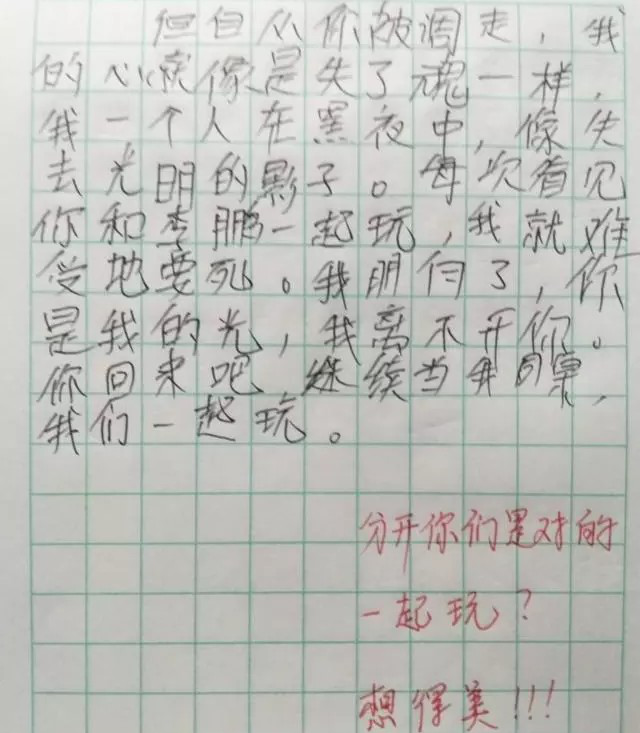 但自从你被调走，我
的心就像是失了魂一样，
我一个人在黑夜中，像失
去光明的影子。每次看见
你和李鹏一起玩，我就难
受地要死。我明白了，你
是我的光，我离不开你。
你回来吧，继续当我同桌，
我们一起玩。
分开你们是对的
一起玩？
想得美！！！